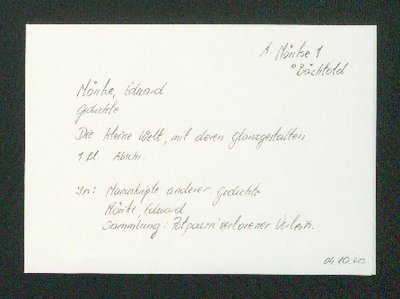 A Mörike 1
°Bächtold
Mörike, Eduard
Gedichte
Die kleine Welt, mit deren Glanzgestalten
1 Bl. Abschr.
In: Manuskripte anderer Gedichte
Mörike, Eduard
Sammlung: Potpourri verlorener
04.10.